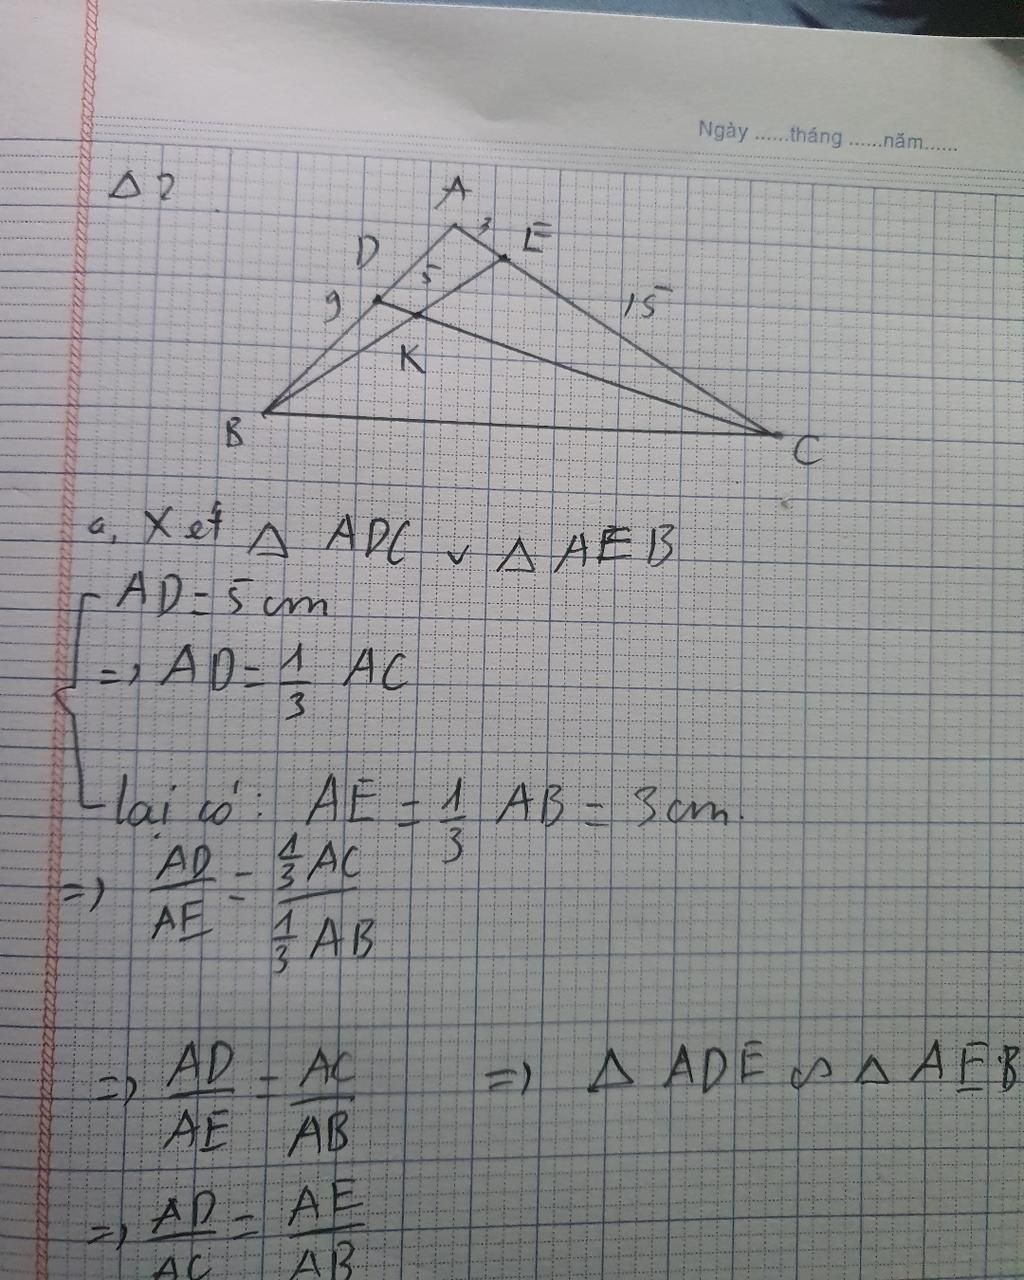 Ngày ......tháng ......năm......
Δ 2
A
3
D
E
5
9
15
K
B
C
a, Xét Δ ADC v Δ AEB
AD = 5 cm
=> AD = 1/3 AC
lại có: AE = 1/3 AB = 3 cm.
=> AD/AE = 1/3 AC / 1/3 AB
=> AD/AE = AC/AB => Δ ADE ∽ Δ AEB
=> AD/AC = AE/AB